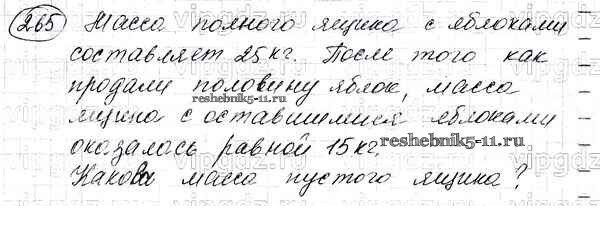 265 Масса полного ящика с яблоками
составляет 25 кг. После того как
продали половину яблок, масса
ящика с оставшимися яблоками
reshebnik5-11.ru
оказалась равной 15 кг.
reshebnik5-11.ru
Какова масса пустого ящика?